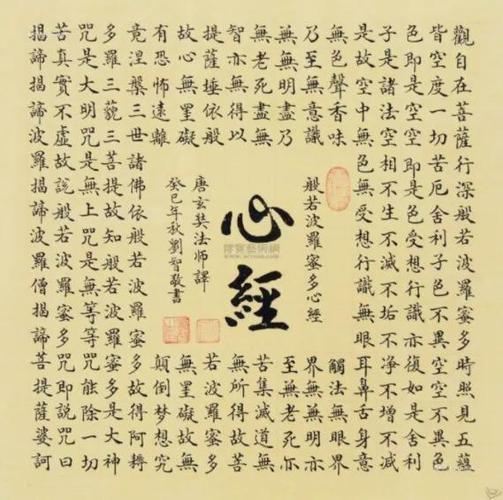 觀自在菩薩行深般若波羅蜜多時照見五蘊
皆空度一切苦厄舍利子色不異空空不異色
色即是空空即是色受想行識亦復如是舍利
子是諸法空相不生不滅不垢不净不增不減
是故空中無色無受想行識無眼耳鼻舌身意
無色聲香味
觸法無眼界
乃至無意識
界無無明亦
無無明盡乃
至無老死亦
無老死盡無
苦集滅道無
智亦無得以
無所得故菩
提薩埵依般
若波羅蜜多
故心無罣礙
無罣礙故無
有恐怖遠離
顛倒夢想究
竟涅槃三世諸佛依般若波羅蜜多故得阿耨
多羅三藐三菩提故知般若波羅蜜多是大神
咒是大明咒是無上咒是無等等咒能除一切
苦真實不虛故說般若波羅蜜多咒即說咒曰
揭諦揭諦波羅揭諦波羅僧揭諦菩提薩婆訶
般若波羅蜜多心經
心經
唐玄奘法師譯
癸巳年秋劉智敬書